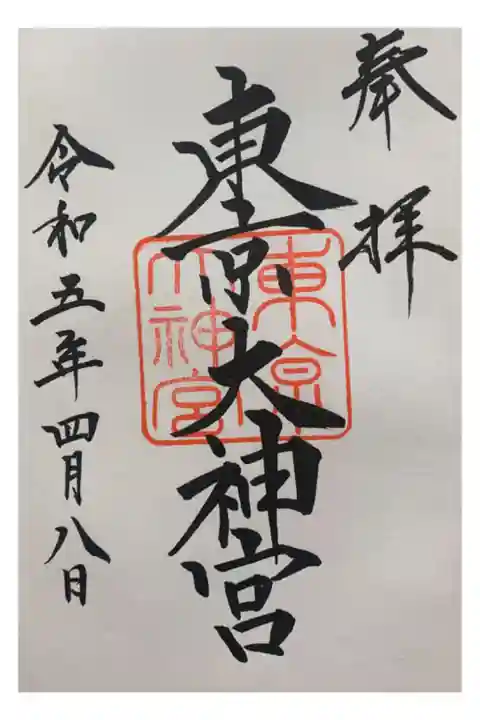 奉拝
東京大神宮
東京大神宮
令和五年四月八日